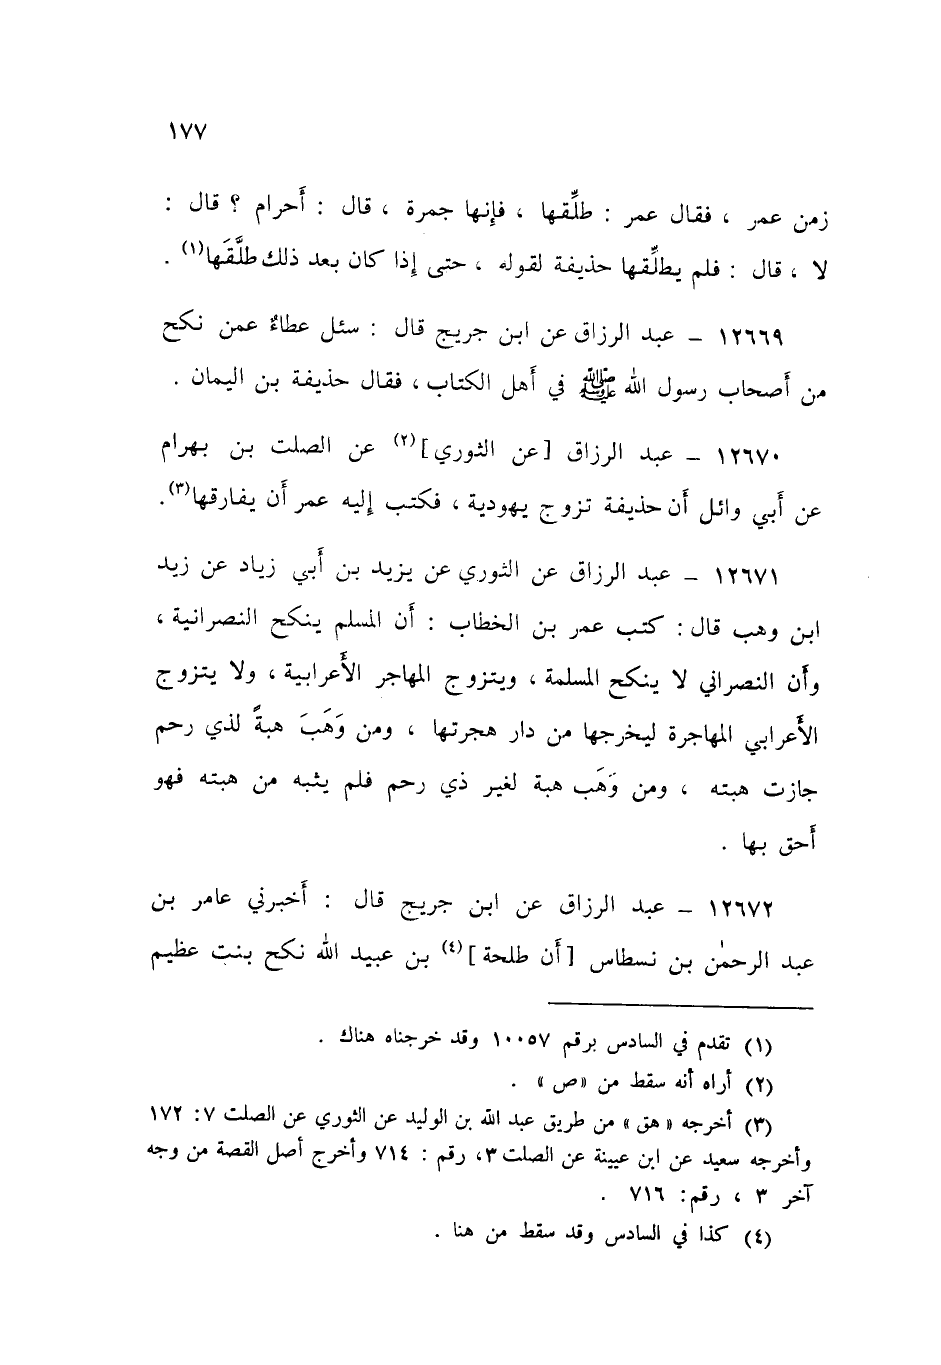 ١٧٧
زمن عمر ، فقال عمر : طلِّقها ، فإنها جمرة ، قال : أَحرام ؟ قال :
لا ، قال : فلم يطلِّقها حذيفة لقوله ، حتى إِذا كان بعد ذلك طلَّقَها(١) .
١٢٦٦٩ – عبد الرزاق عن ابن جريج قال : سئل عطاءٌ عمن نكح
من أَصحاب رسول الله ﷺ في أَهل الكتاب ، فقال حذيفة بن اليمان .
١٢٦٧٠ – عبد الرزاق [عن الثوري](٢) عن الصلت بن بهرام
عن أَبي وائل أَن حذيفة تزوج يهودية ، فكتب إِليه عمر أَن يفارقها(٣).
١٢٦٧١ – عبد الرزاق عن الثوري عن يزيد بن أَبي زياد عن زيد
ابن وهب قال : كتب عمر بن الخطاب : أَن المسلم ينكح النصرانية ،
وأَن النصراني لا ينكح المسلمة ، ويتزوج المهاجر الأَعرابية ، ولا يتزوج
الأَعرابي المهاجرة ليخرجها من دار هجرتها ، ومن وَهَبَ هبةً لذي رحم
جازت هبته ، ومن وَهَب هبة لغير ذي رحم فلم يثبه من هبته فهو
أَحق بها .
١٢٦٧٢ – عبد الرزاق عن ابن جريج قال : أَخبرني عامر بن
عبد الرحمٰن بن نسطاس [أَن طلحة](٤) بن عبيد الله نكح بنت عظيم
(١) تقدم في السادس برقم ١٠٠٥٧ وقد خرجناه هناك .
(٢) أراه أنه سقط من «ص» .
(٣) أخرجه «هق» من طريق عبد الله بن الوليد عن الثوري عن الصلت ٧: ١٧٢
وأخرجه سعيد عن ابن عيينة عن الصلت ٣، رقم : ٧١٤ وأخرج أصل القصة من وجه
آخر ٣ ، رقم: ٧١٦ .
(٤) كذا في السادس وقد سقط من هنا .